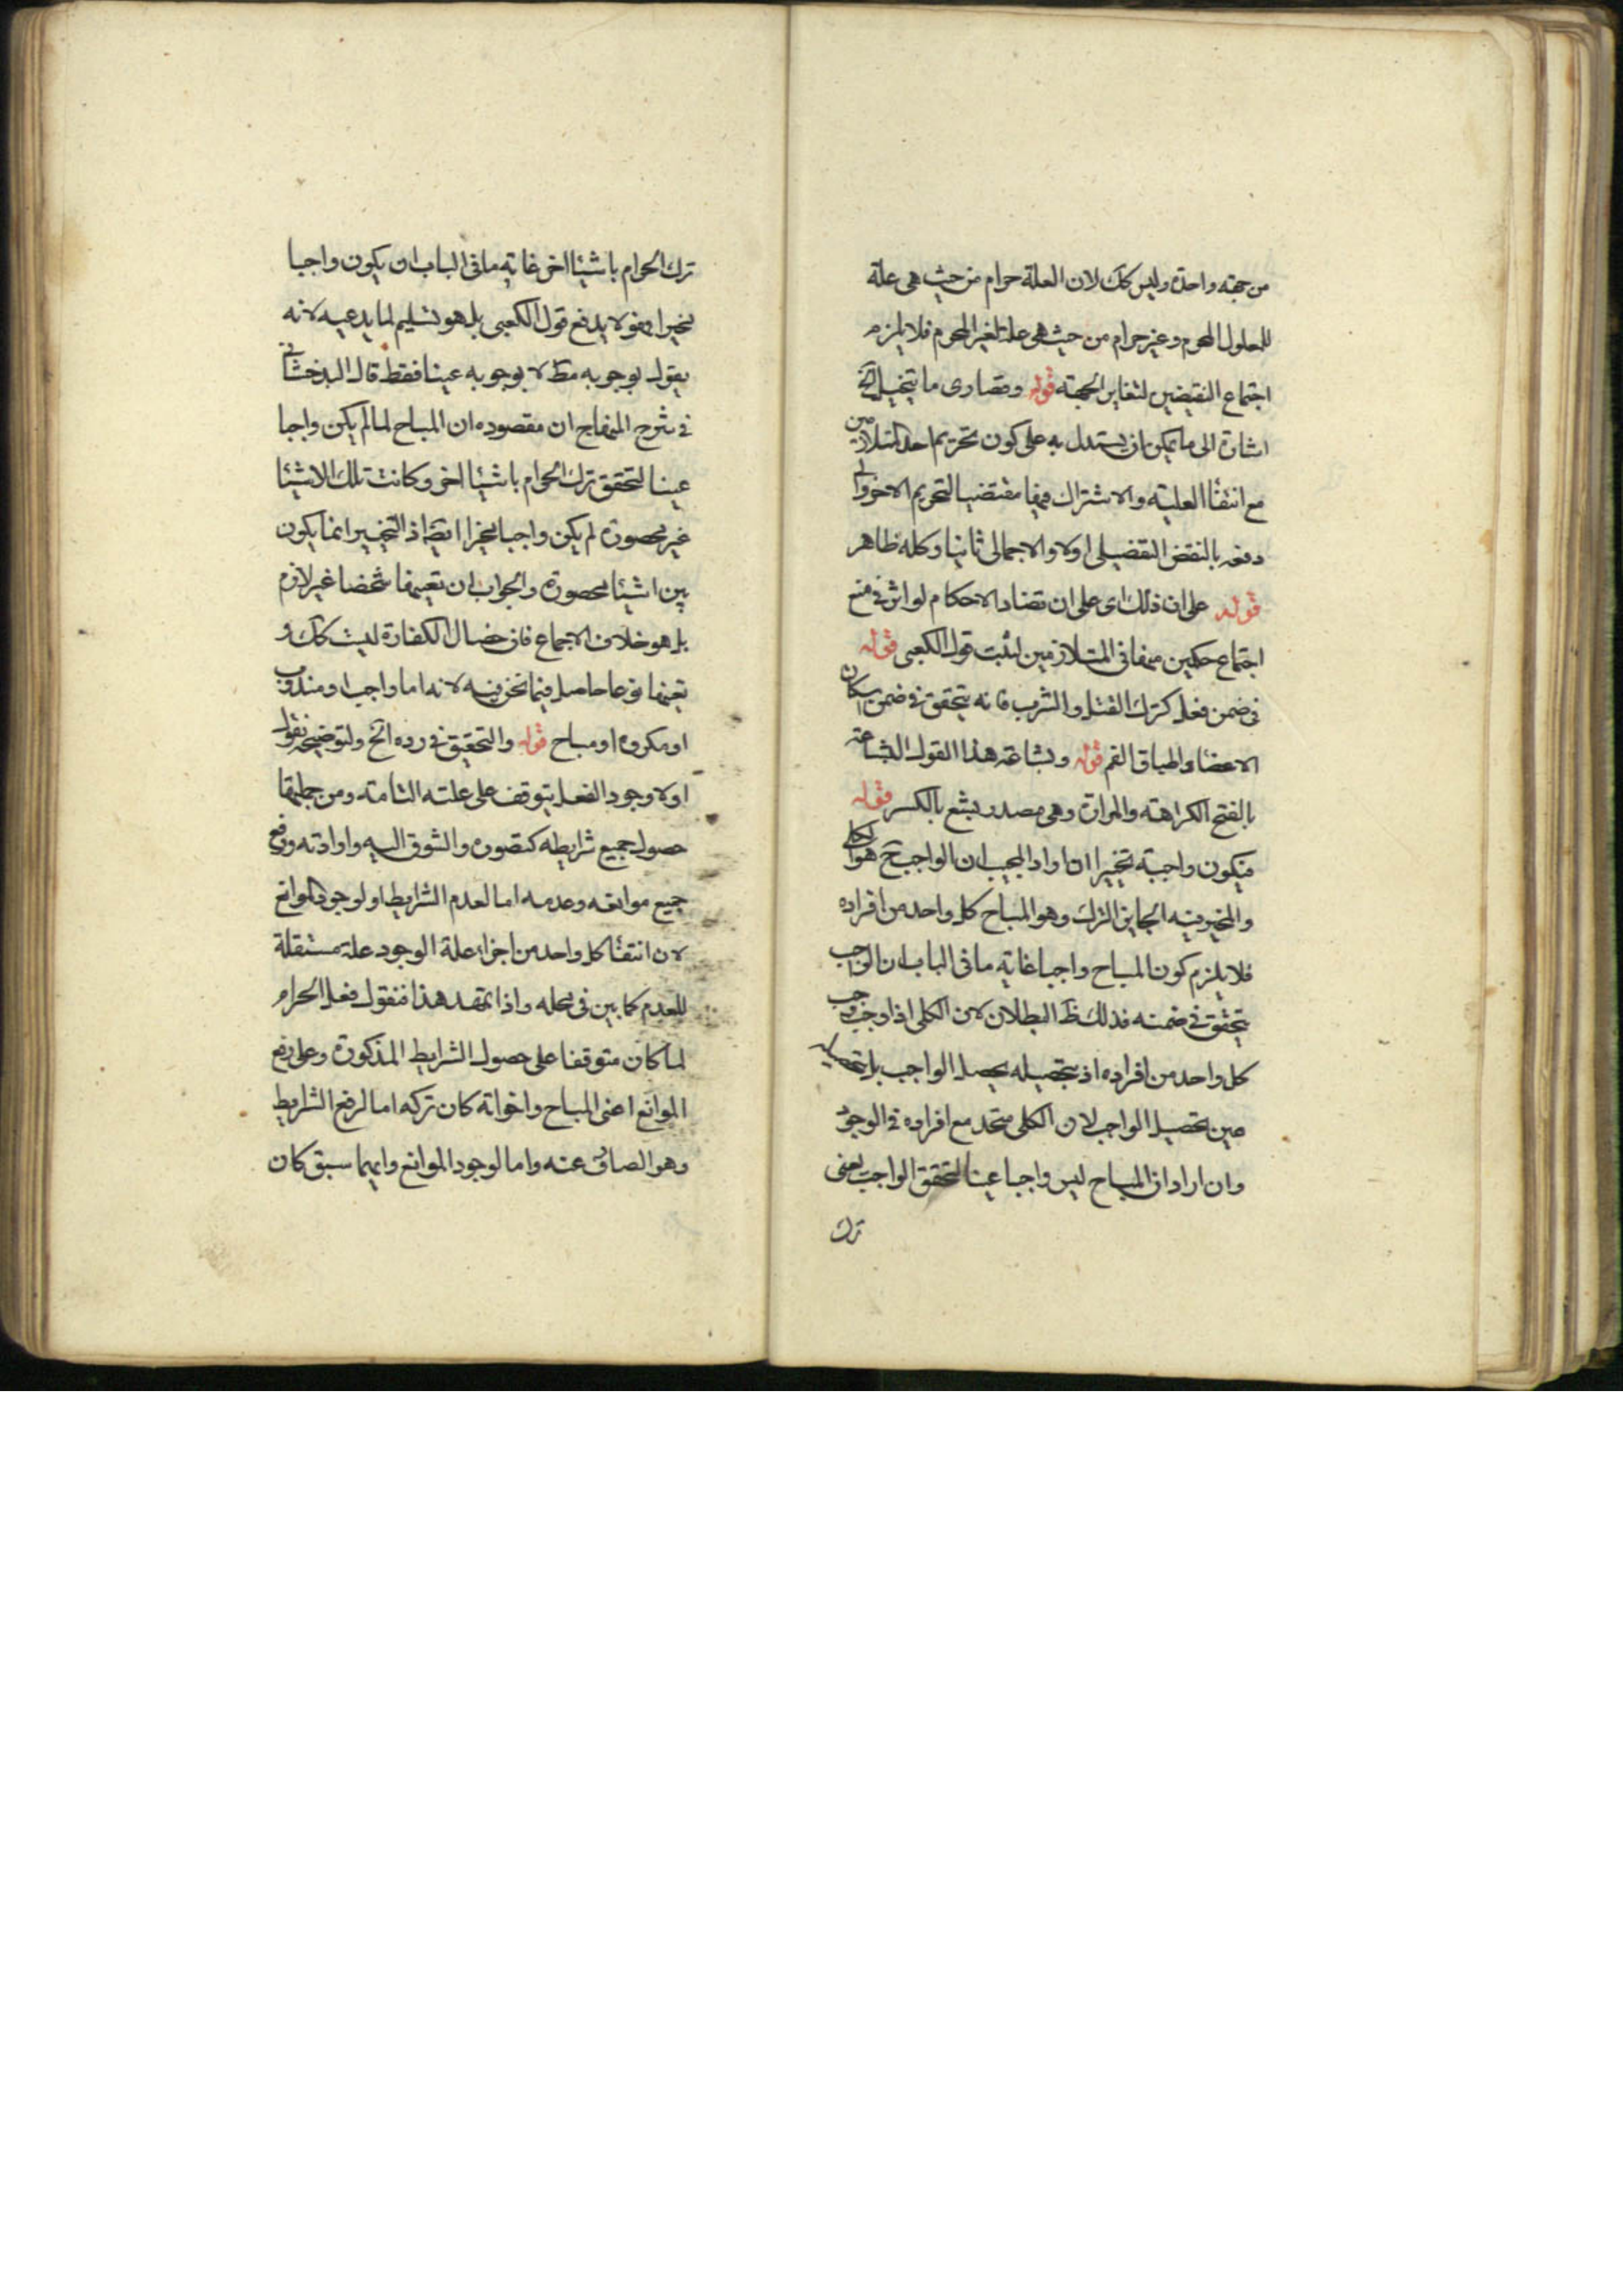 من جهة واحدة وليس كك لان العلة حرام من حيث هى علة
للمعلول المحرم وغير حرام من حيث هى علة لغير المحرم فلا يلزم
اجتماع النقيضين لتغاير الجهة قوله وقصارى ما يتخيل الخ
اشارة الى ما يمكن ان يستدل به على كون تحريم احد المتلازمين
مع انتفاء العلية والاشتراك فيها مقتضيا لتحريم الاخر والى
دفعه بالنقض التفضيلى اولا والاجمالى ثانيا وكله ظاهر
قوله على ان ذلك اى على ان تضاد الاحكام لو اثر فى منع
اجتماع حكمين منها فى المتلازمين لثبت قول الكعبى قوله
فى ضمن فعل كترك القتل والشرب فانه يتحقق فى ضمن اسكان
الاعضاء واطباق الفم قوله وبشاعة هذا القول البشاعة
بالفتح الكراهة والمرارة وهى مصدر بشع بالكسر قوله
فيكون واجبة تخييرا ان اراد المجيب ان الواجب ح هو الكلى
والمخير فيه الجايز الترك وهو المباح كل واحد من افراده
فلا يلزم كون المباح واجبا غاية ما فى الباب ان الواجب
يتحقق فى ضمنه فذلك ظ البطلان لان الكلى اذا وجب وجب
كل واحد من افراده اذ بتحصيله يحصل الواجب بل تحصيله
عين تحصيل الواجب لان الكلى متحد مع افراده فى الوجود
وان اراد ان المباح ليس واجبا عينا لتحقق الواجب يعنى
ترك
ترك الحرام باشياء اخر غاية ما فى الباب ان يكون واجبا
مخيرا فهو لا يدفع قول الكعبى بل هو تسليم لما يدعيه لانه
يقول بوجوبه مط لا بوجوبه عينا فقط قال البدخشانى
فى شرح المنهاج ان مقصوده ان المباح لما لم يكن واجبا
عينا لتحقق ترك الحرام باشياء اخر وكانت تلك الاشياء
غير محصورة لم يكن واجبا مخيرا ايضا اذ التخيير انما يكون
بين اشياء محصورة والجواب ان تعيينها شخصا غير لازم
بل هو خلاف الاجماع فان خصال الكفارة ليست كك و
تعينها نوعا حاصل فيما نحن فيه لانه اما واجب او مندوب
او مكروه او مباح قوله والتحقيق فى رده الخ ولتوضيحه نقول
اولا وجود الفعل يتوقف على علته التامة ومن جملتها
حصول جميع شرايطه كتصوره والشوق اليه وارادته ورفع
جميع موانعه وعدمه اما لعدم الشرايط او لوجود الموانع
لان انتفاء كل واحد من اجزاء علة الوجود علة مستقلة
للعدم كما بين فى محله واذا تمهد هذا فنقول فعل الحرام
لما كان متوقفا على حصول الشرايط المذكورة وعلى رفع
الموانع اعنى المباح واخواته كان تركه اما لرفع الشرايط
وهو الصارف عنه واما لوجود الموانع وايهما سبق كان